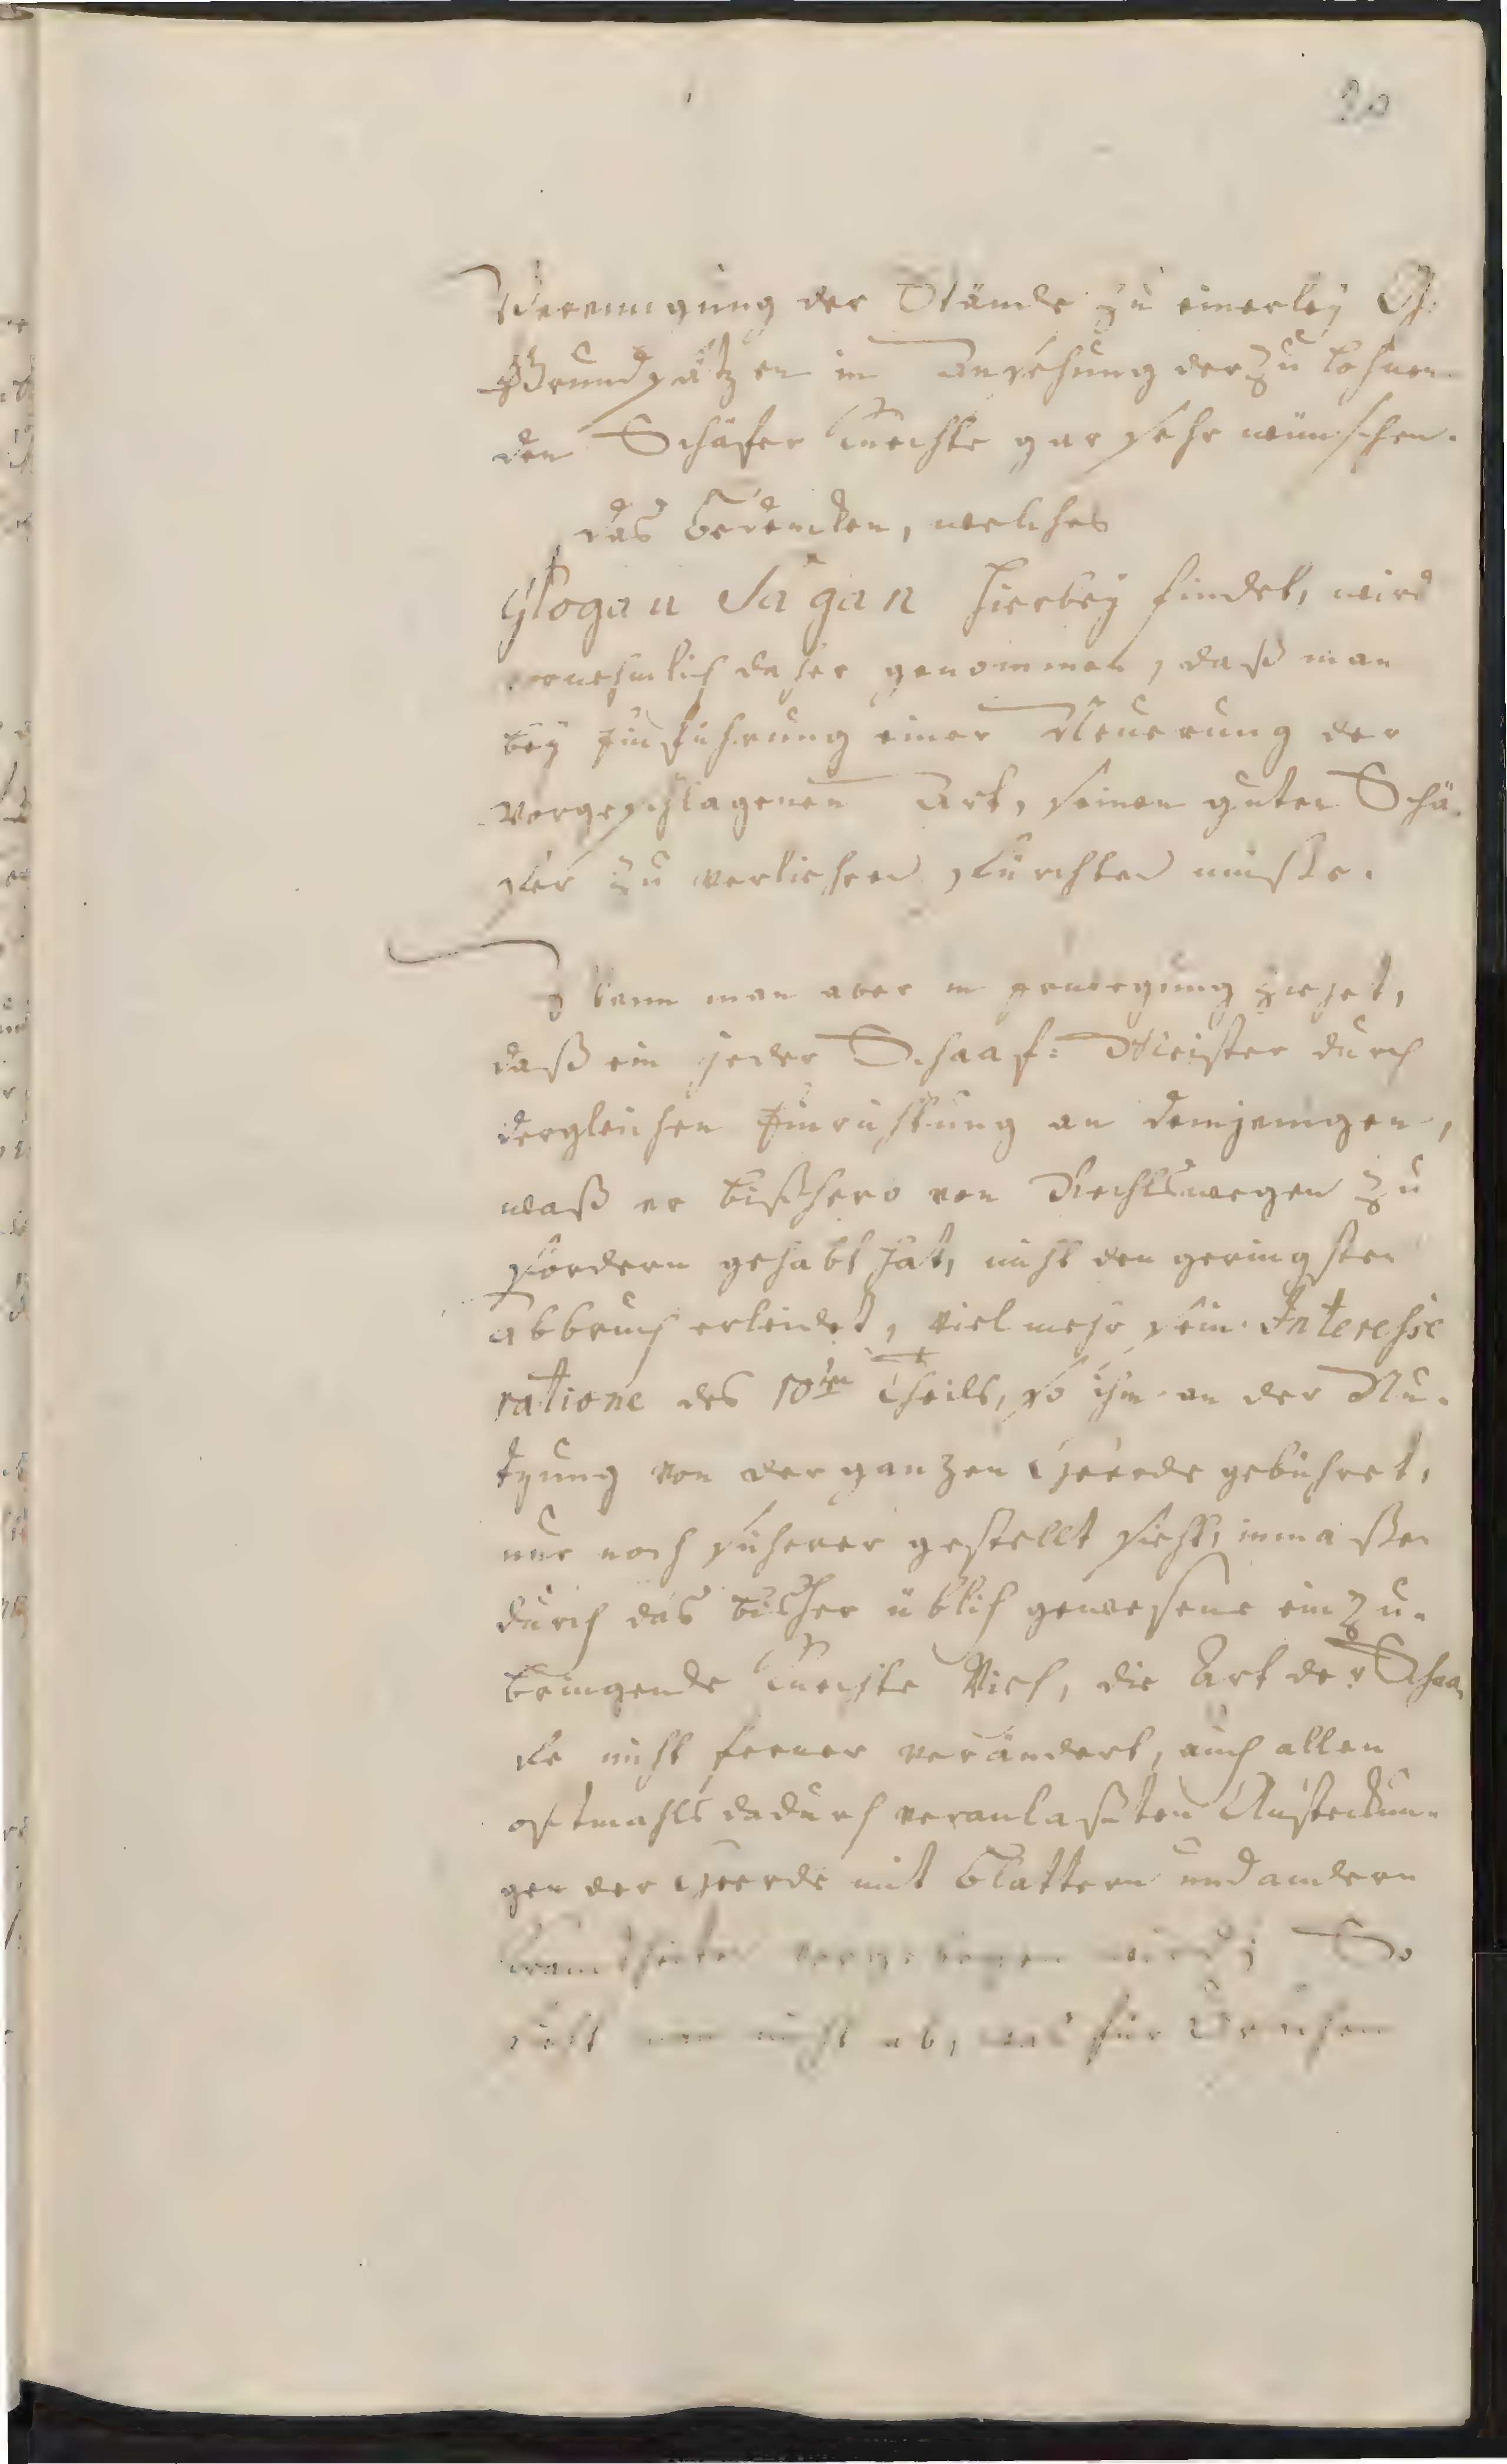 20
Vereinigung der Stände zu einerley
Grundsätzen in Ansehung der zu lohnen-
den Schäfer Knechte gar sehr wünschen.
das Bedencken, welches
Glogau Sagan hierbey findet, wird
vornehmlich daher genommen, daß man
bey Einführung einer Neuerung der
vorgeschlagenen Art, seinen guten Schä-
fer zu verliehren fürchten müste.
Wenn man aber in Erwegung ziehet,
daß ein jeder Schaaf: Meister durch
dergleichen Einrichtung an demjenigen,
waß er bißhero von Rechtswegen zu
fordern gehabt hat, nicht den geringsten
Abbruch erleidet, vielmehr sein Interesse
ratione des 10ten Theils, so ihm an der Nu-
tzung von der ganzen Heerde gebühret,
nur noch sicherer gestellt sieht, inmaßen
durch das bisher üblich gewesene einzu-
bringende Knechte Vieh, die Art der Schaa-
fe nicht ferner verändert, auch allen
oftmahls dadurch veranlaßten Ansteckun-
gen der Heerde mit Blattern und andern
Kranckheiten vorgebogen wird; So
sieht man nicht ab, was für Ursachen